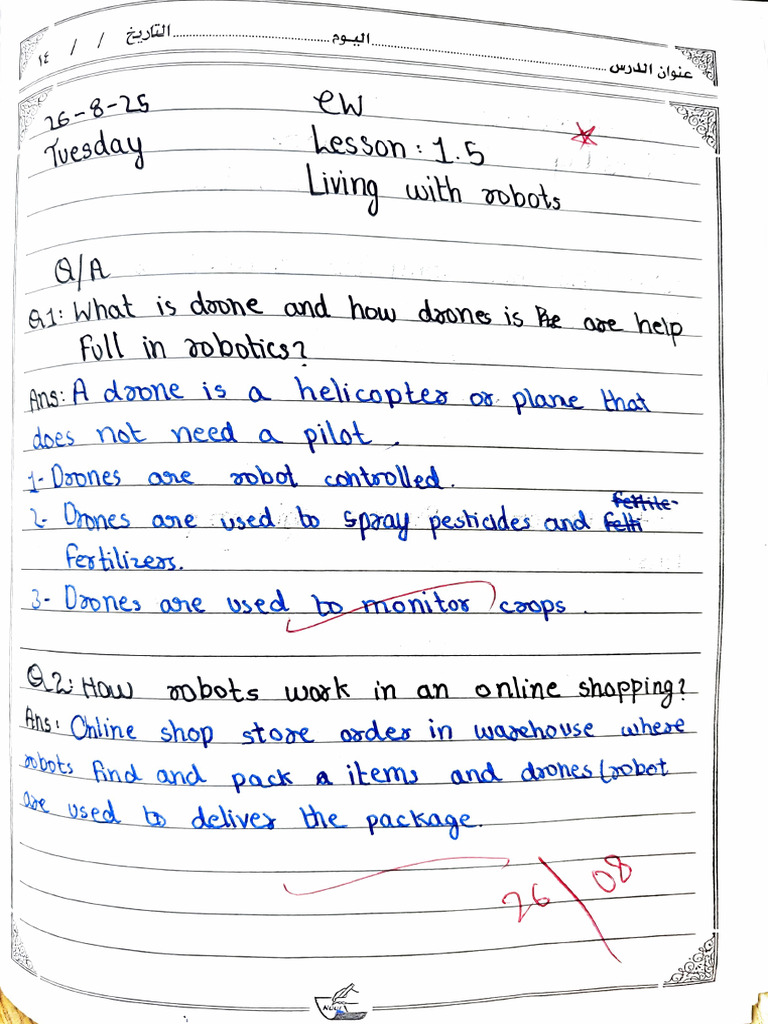 التاريخ / / ١٤ اليوم
عنوان الدرس
26-8-25 CW
Tuesday Lesson: 1.5
Living with robots
Q/A
Q1: What is drone and how drones is are help
full in robotics?
Ans: A drone is a helicopter or plane that
does not need a pilot.
1- Drones are robot controlled.
fertile-
2- Drones are used to spray pesticides and
fertilizers.
3- Drones are used to monitor crops.
Q2: How robots work in an online shopping?
Ans: Online shop store order in warehouse where
robots find and pack items and drones/robot
are used to deliver the package.
26/08